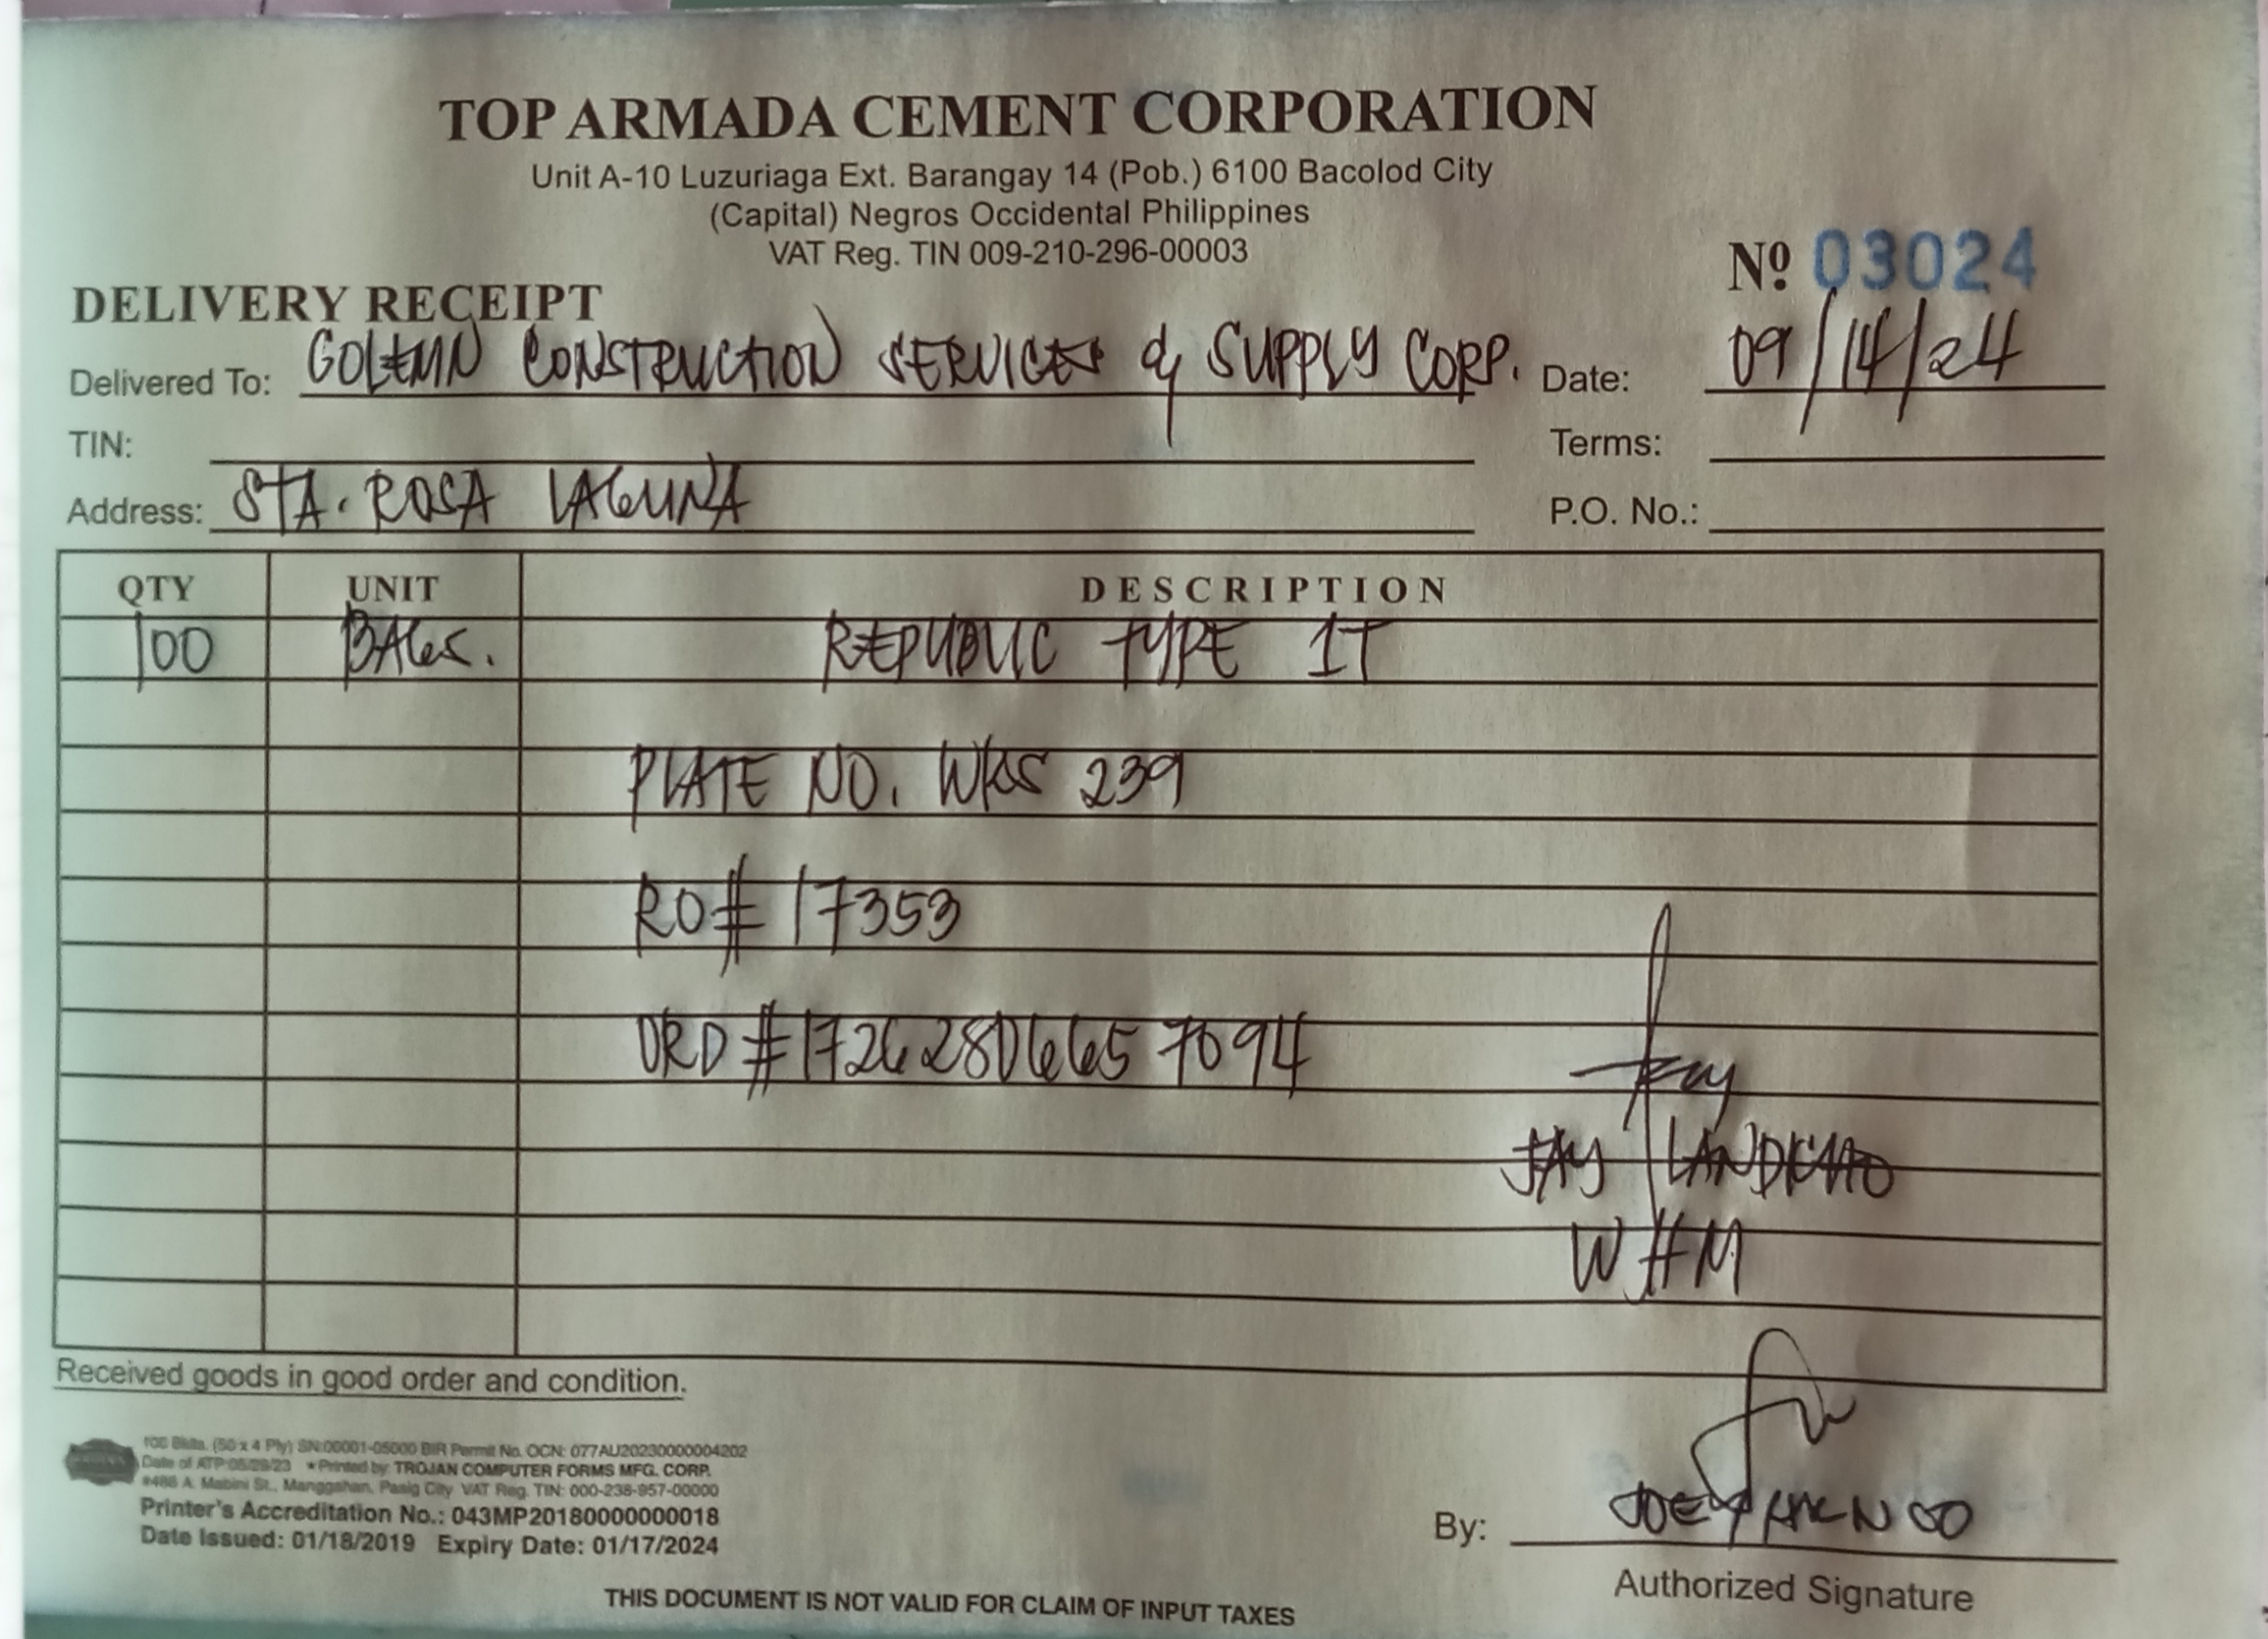 TOP ARMADA CEMENT CORPORATION
Unit A-10 Luzuriaga Ext. Barangay 14 (Pob.) 6100 Bacolod City
(Capital) Negros Occidental Philippines
VAT Reg. TIN 009-210-296-00003
Nº 03024
DELIVERY RECEIPT
Delivered To: CONSTRUCTION SERVICES & SUPPLY CORP. Date: 09/14/24
TIN: Terms:
Address: STA. ROSA LAGUNA P.O. No.:
QTY UNIT DESCRIPTION
100 BAGS. REPUBLIC TYPE 1T
PLATE NO. WKS 239
RO# 17353
ORD #1726280665 7094
JAY LANDICHO
WHM
Received goods in good order and condition.
100 Bklts. (50 x 4 Ply) SN:00001-05000 BIR Permit No. OCN: 077AU20230000004202
Date of ATP:05/29/23 ★Printed by: TROJAN COMPUTER FORMS MFG. CORP.
#486 A. Mabini St., Manggahan, Pasig City VAT Reg. TIN: 000-238-957-00000
Printer's Accreditation No.: 043MP20180000000018
Date Issued: 01/18/2019 Expiry Date: 01/17/2024
By: JOEY
Authorized Signature
THIS DOCUMENT IS NOT VALID FOR CLAIM OF INPUT TAXES